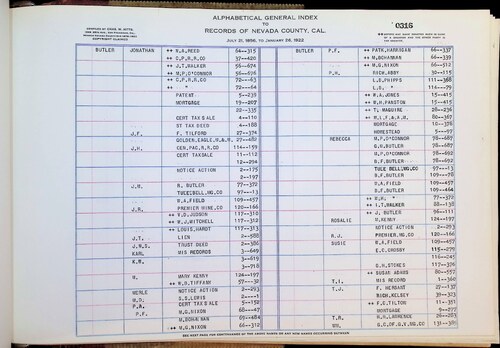 ALPHABETICAL GENERAL INDEX
TO
RECORDS OF NEVADA COUNTY, CAL.
JULY 21, 1856, TO JANUARY 26, 1922
0316
BUTLER JONATHAN ++ W.A.REED 64--315
++ C.P.R.R.CO 37--420
++ J.T.WALKER 56--674
++ M.P.O'CONNOR 56--676
++ C.P.R.R.CO 72--63
++ " 72--64
PATENT 5--239
MORTGAGE 19--207
22--335
CERT TAX SALE 4--110
ST TAX DEED 4--188
J.F. F. TILFORD 27--374
GOLDEN,EAGLE,M,& M, 27--82
J.H. CEN,PAC,R,R,CO 114--159
CERT TAXSALE 11--112
12--294
NOTICE ACTION 2--175
2--197
J.M. R. BUTLER 77--372
TULE,BELL,MG,CO 97--13
W.A.FIELD 109--457
J.R. PREMIER MINE,CO 120--166
++ V.D.JUDSON 117--310
++ W.J.MITCHELL 117--312
++ LOUIS,HARDT 117--313
J.T. LIEN 2--588
J.W.S. TRUST DEED 2--386
KARL MIS RECORDS 3--649
K.W. 3--619
3--718
M. MARY KENNY 124--197
++ M.D.TIFFANY 57--32
MERLE NOTICE ACTION 2--293
M.O. S.S.LEWIS 2---1
P.A. CERT TAX SALE 5--152
P.F. M.G.NIXON 58--47
M.BOHANAN 69--484
++ M.G.NIXON 66--312
BUTLER P.F. ++ PATK,HARRIGAN 66--337
++ M.BOHANNAN 66--339
++ M.G.NIXON 66--512
P.H. RICH,ABBY 30--115
L.D.PHIPPS 111--368
L.D. " 114--79
++ W.A.JONES 15--415
++ W.H.PAXSTON 15--415
++ T. MAGUIRE 28--234
++ M.L,F,&A,M, 80--367
MORTGAGE 11--378
HOMESTEAD 5--97
REBECCA M.P.O'CONNOR 78--687
G.H.BUTLER 78--687
M.P.O'CONNOR 78--692
B.F.BUTLER 78--692
TULE BELL,MG,CO 97--13
B.F.BUTLER 109--78
W.A.FIELD 109--457
B.F.BUTLER 109--464
++ W.H. " 77--372
++ I.T.WALKER 88--138
++ J. BUTLER 56--111
ROSALIE M.KENNY 124--197
NOTICE ACTION 2--293
R.J. PREMIER,MG,CO 120--166
SUSIE W.A.FIELD 109--457
E.C.CROSBY 115--279
116--245
C.H.STEKES 117--376
++ SUSAN ADAMS 80--557
T.I. MIS RECORD 1--360
T.J. F. HERBAST 27--137
RICH,KELSEY 39--323
++ F.C.TILTON 11--351
MORTGAGE 9--277
T.R. R.H.LAWRENCE 26--283
WM. G.C.OF,G.V,MG,CO 131--380